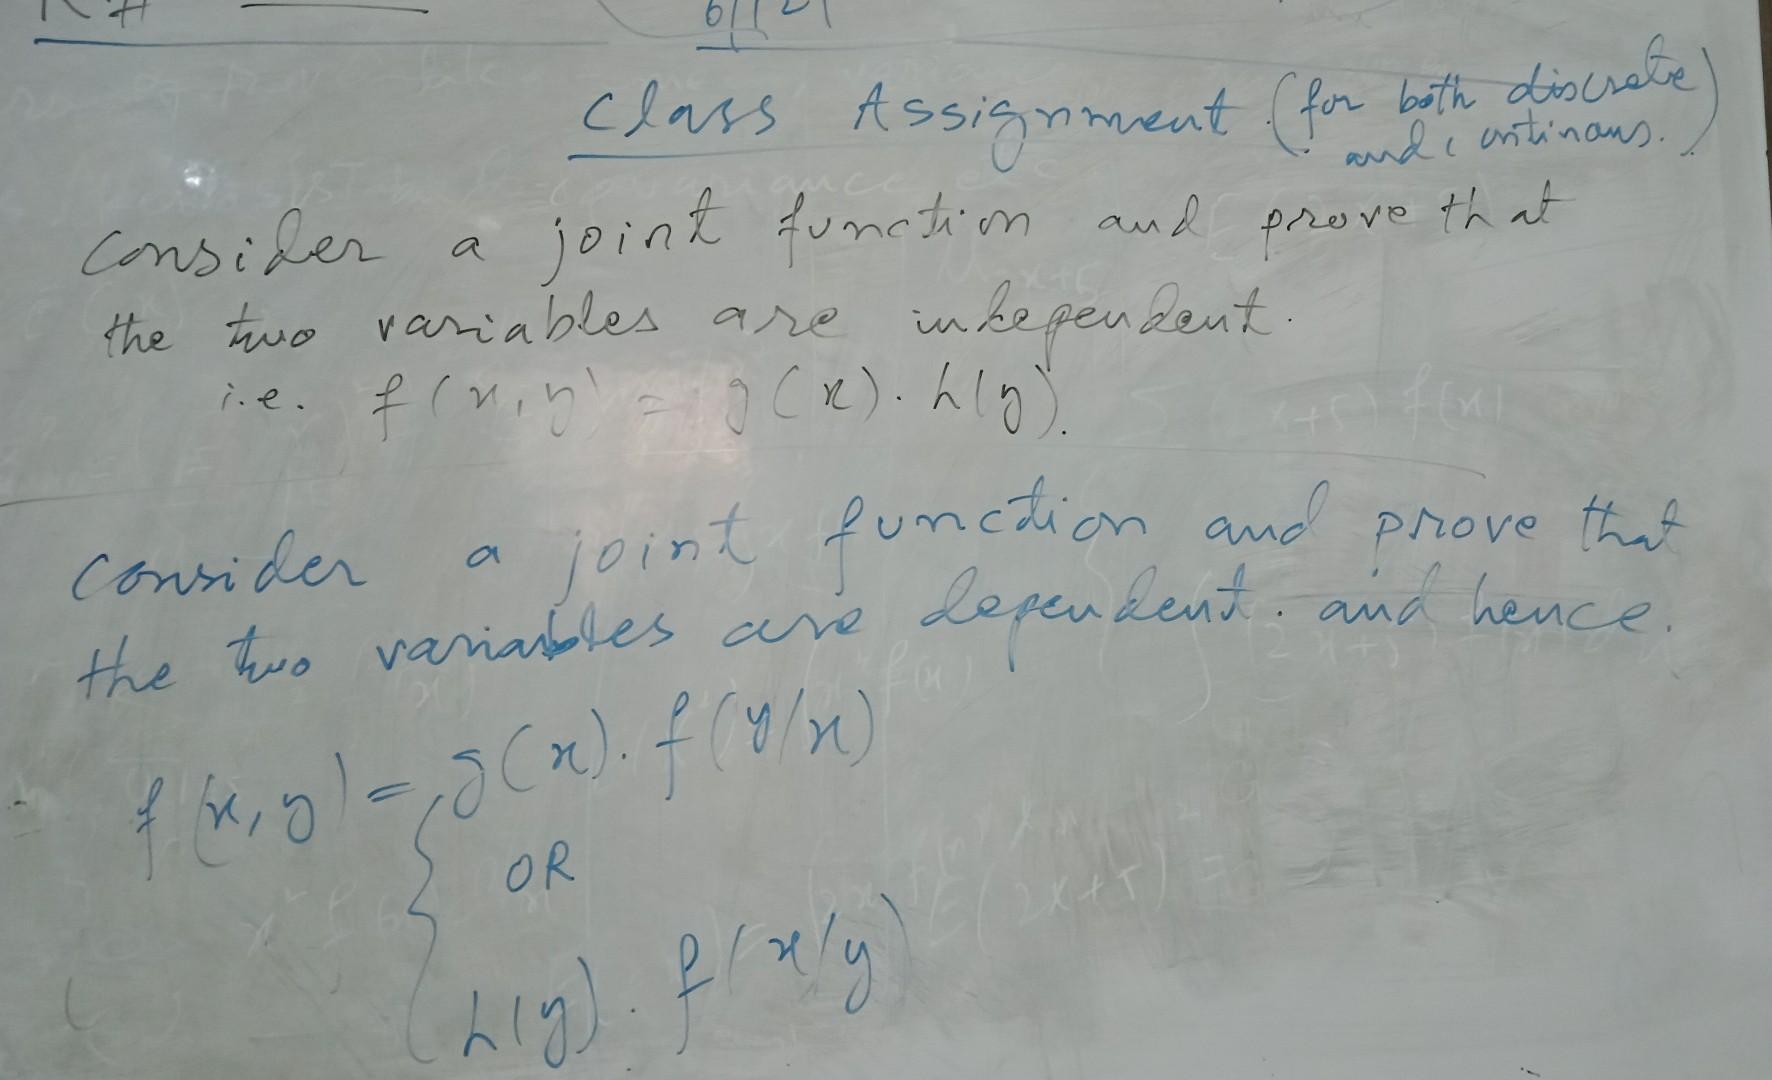 Class Assignment (for both discrete
and continous.)
Consider a joint function and prove that
the two variables are independent.
i.e. f(x,y) = g(x). h(y).
Consider a joint function and prove that
the two variables are dependent. and hence.
f(x,y) = { g(x). f(y/x)
OR
h(y). f(x/y)